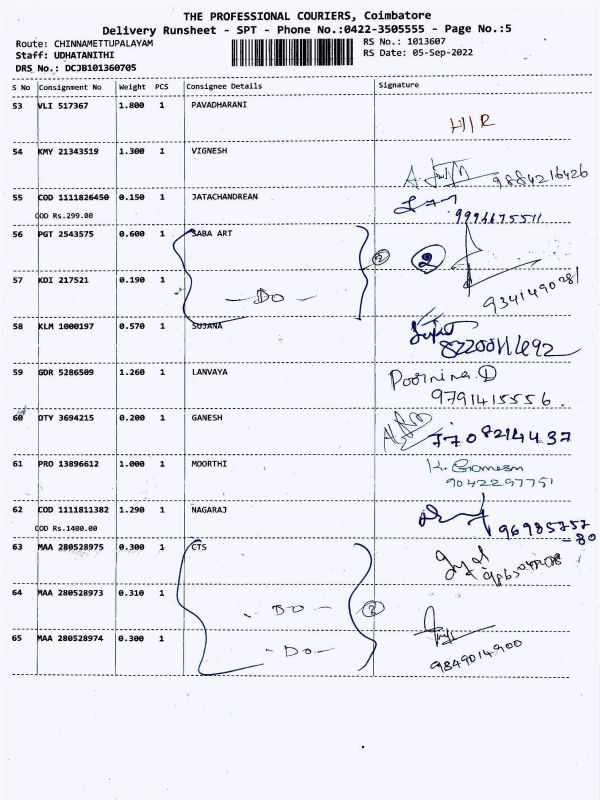 THE PROFESSIONAL COURIERS, Coimbatore
Delivery Runsheet - SPT - Phone No.:0422-3505555 - Page No.:5
Route: CHINNAMETTUPALAYAM RS No.: 1013607
Staff: UDHATANITHI RS Date: 05-Sep-2022
DRS No.: DCJB101360705
S No Consignment No Weight PCS Consignee Details Signature
53 VLI 517367 1.800 1 PAVADHARANI
H/R
54 KMY 21343519 1.300 1 VIGNESH
9884216426
55 COD 1111826450 0.150 1 JATACHANDREAN
COD Rs.299.00 9994675511
56 PGT 2543575 0.600 1 SABA ART 2 2
57 KDI 217521 0.190 1
— Do — 9341490281
58 KLM 1000197 0.570 1 SUJANA
59 GDR 5286509 1.260 1 LANVAYA
Poornima D
9791415556.
60 DTY 3694215 0.200 1 GANESH
7708214437
61 PRO 13896612 1.000 1 MOORTHI
9042297751
62 COD 1111811382 1.290 1 NAGARAJ
COD Rs.1400.00 96985757
-80
63 MAA 280528975 0.300 1 CTS
64 MAA 280528973 0.310 1
- Do -
65 MAA 280528974 0.300 1
- Do -
9849014900